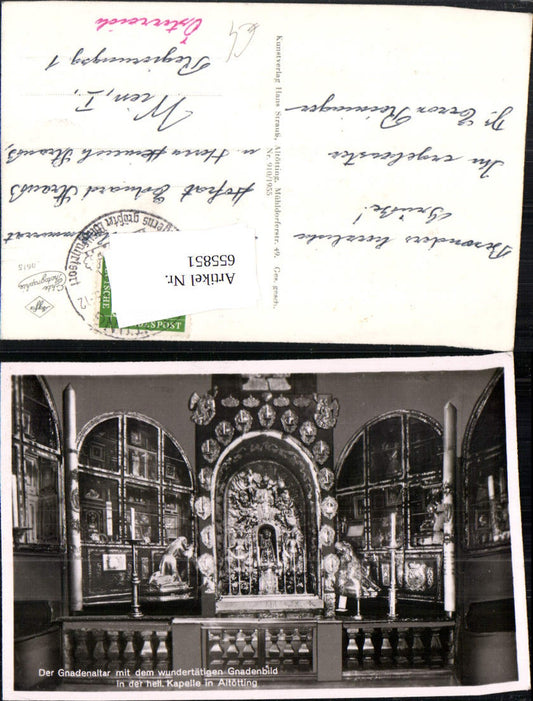 Österreich
64
Regierungsg 1
Wien, I,
u Herrn Heinrich Strauß,
Hofrat Eduard Strauß
Kunstverlag Hans Strauß, Altötting, Mühldorferstr. 49. Ges. gesch.
Nr. 910/1955
Besonders herzliche
Grüße!
Ihr ergebenster
Artikel Nr.
655851
Echte
Photographie
Agfa
Der Gnadenaltar mit dem wundertätigen Gnadenbild
in der heil. Kapelle in Altötting